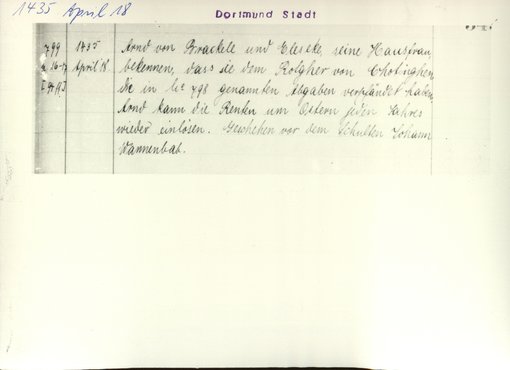 1435 April 18
Dortmund Stadt
799 1435 Arnd von Brackele und Eleseke seine Hausfrau
April 18 bekennen, dass sie dem Rotgher von Chotinghen
die in No 798 genannten Abgaben verpfändet haben
Arnd kann die Renten um Ostern jeden Jahres
wieder einlösen. Geschehen vor dem Schulten Johann
Wannenbat.